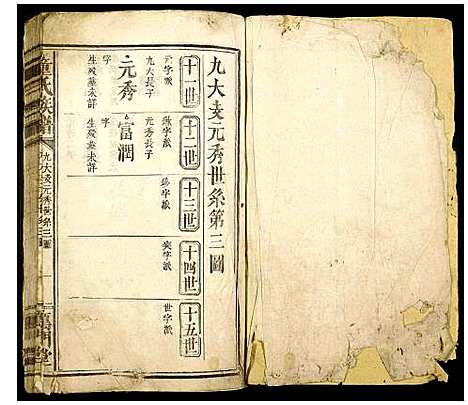 九大支元秀世系第三圖
十一世
十二世
十三世
十四世
十五世
元字派
字派
字派
字派
世字派
九大長子
元秀長子
元秀
富潤
字
字
生歿墓未詳
生歿墓未詳
童氏族譜
九大支元秀世系三圖
堂